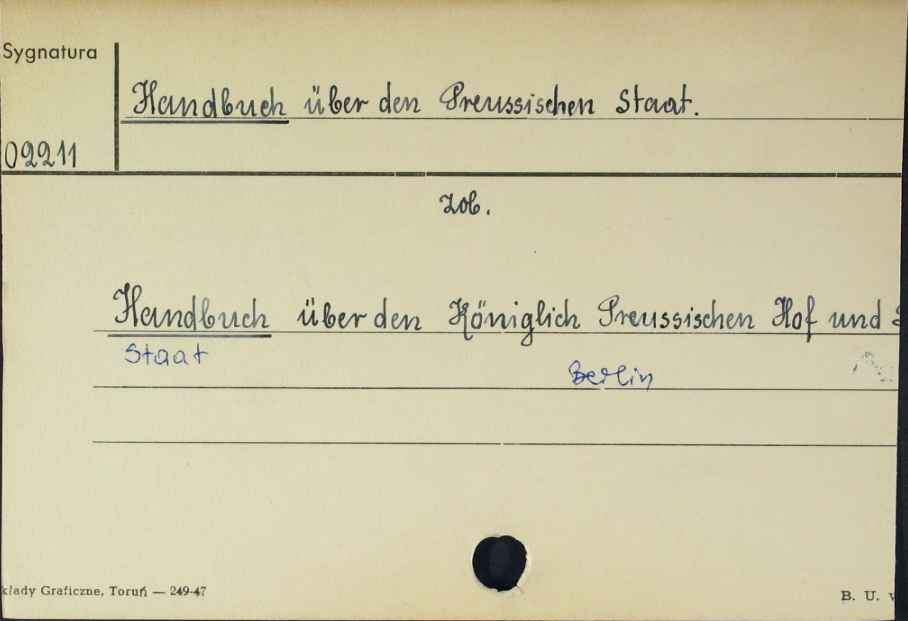 Sygnatura
Handbuch über den Preussischen Staat.
02211
zob.
Handbuch über den Königlich Preussischen Hof und
Staat
Berlin
kłady Graficzne, Toruń — 249-47
B. U.